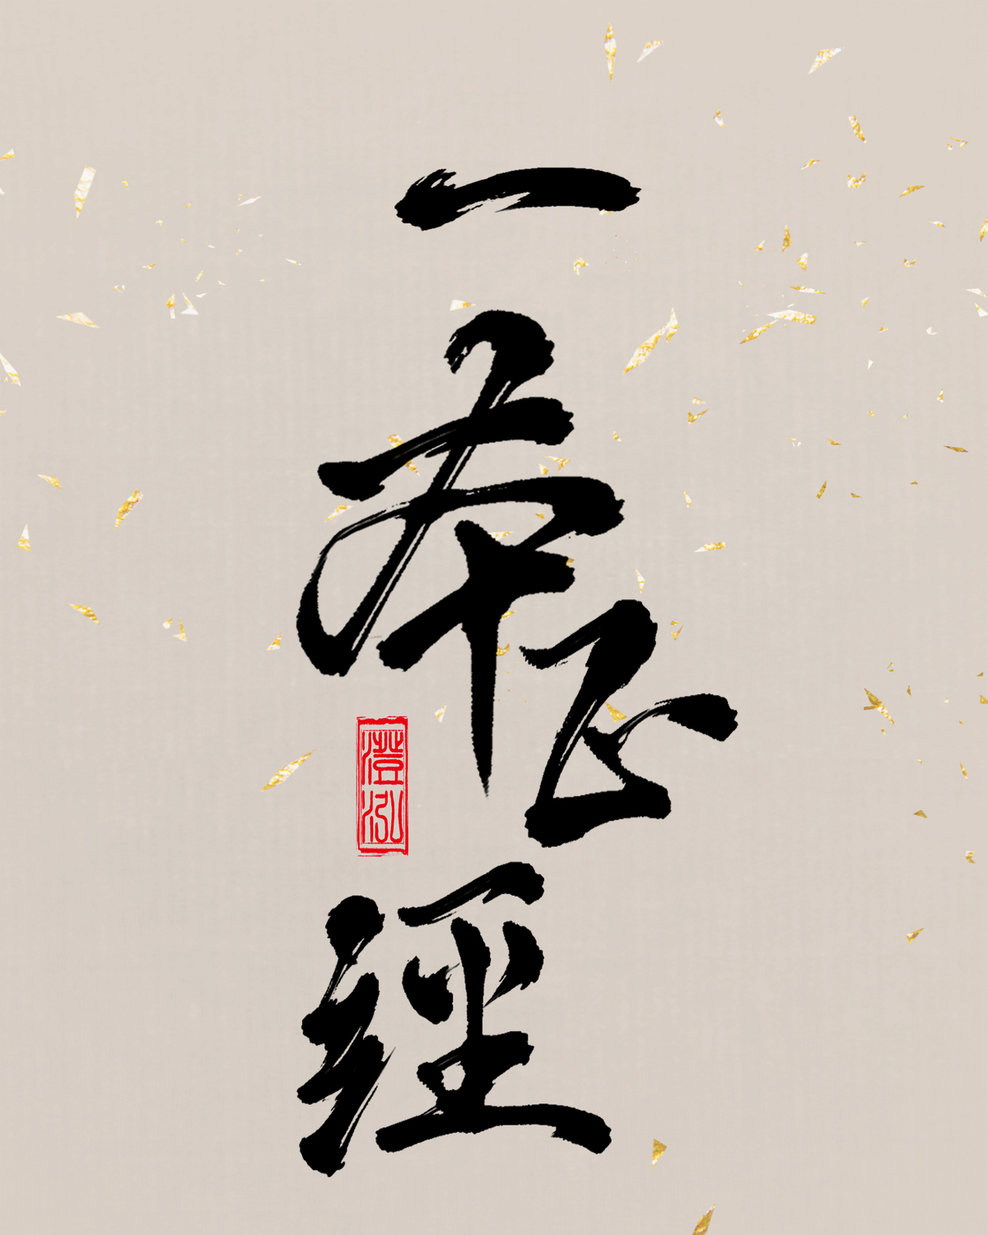 一本正經
澄泓